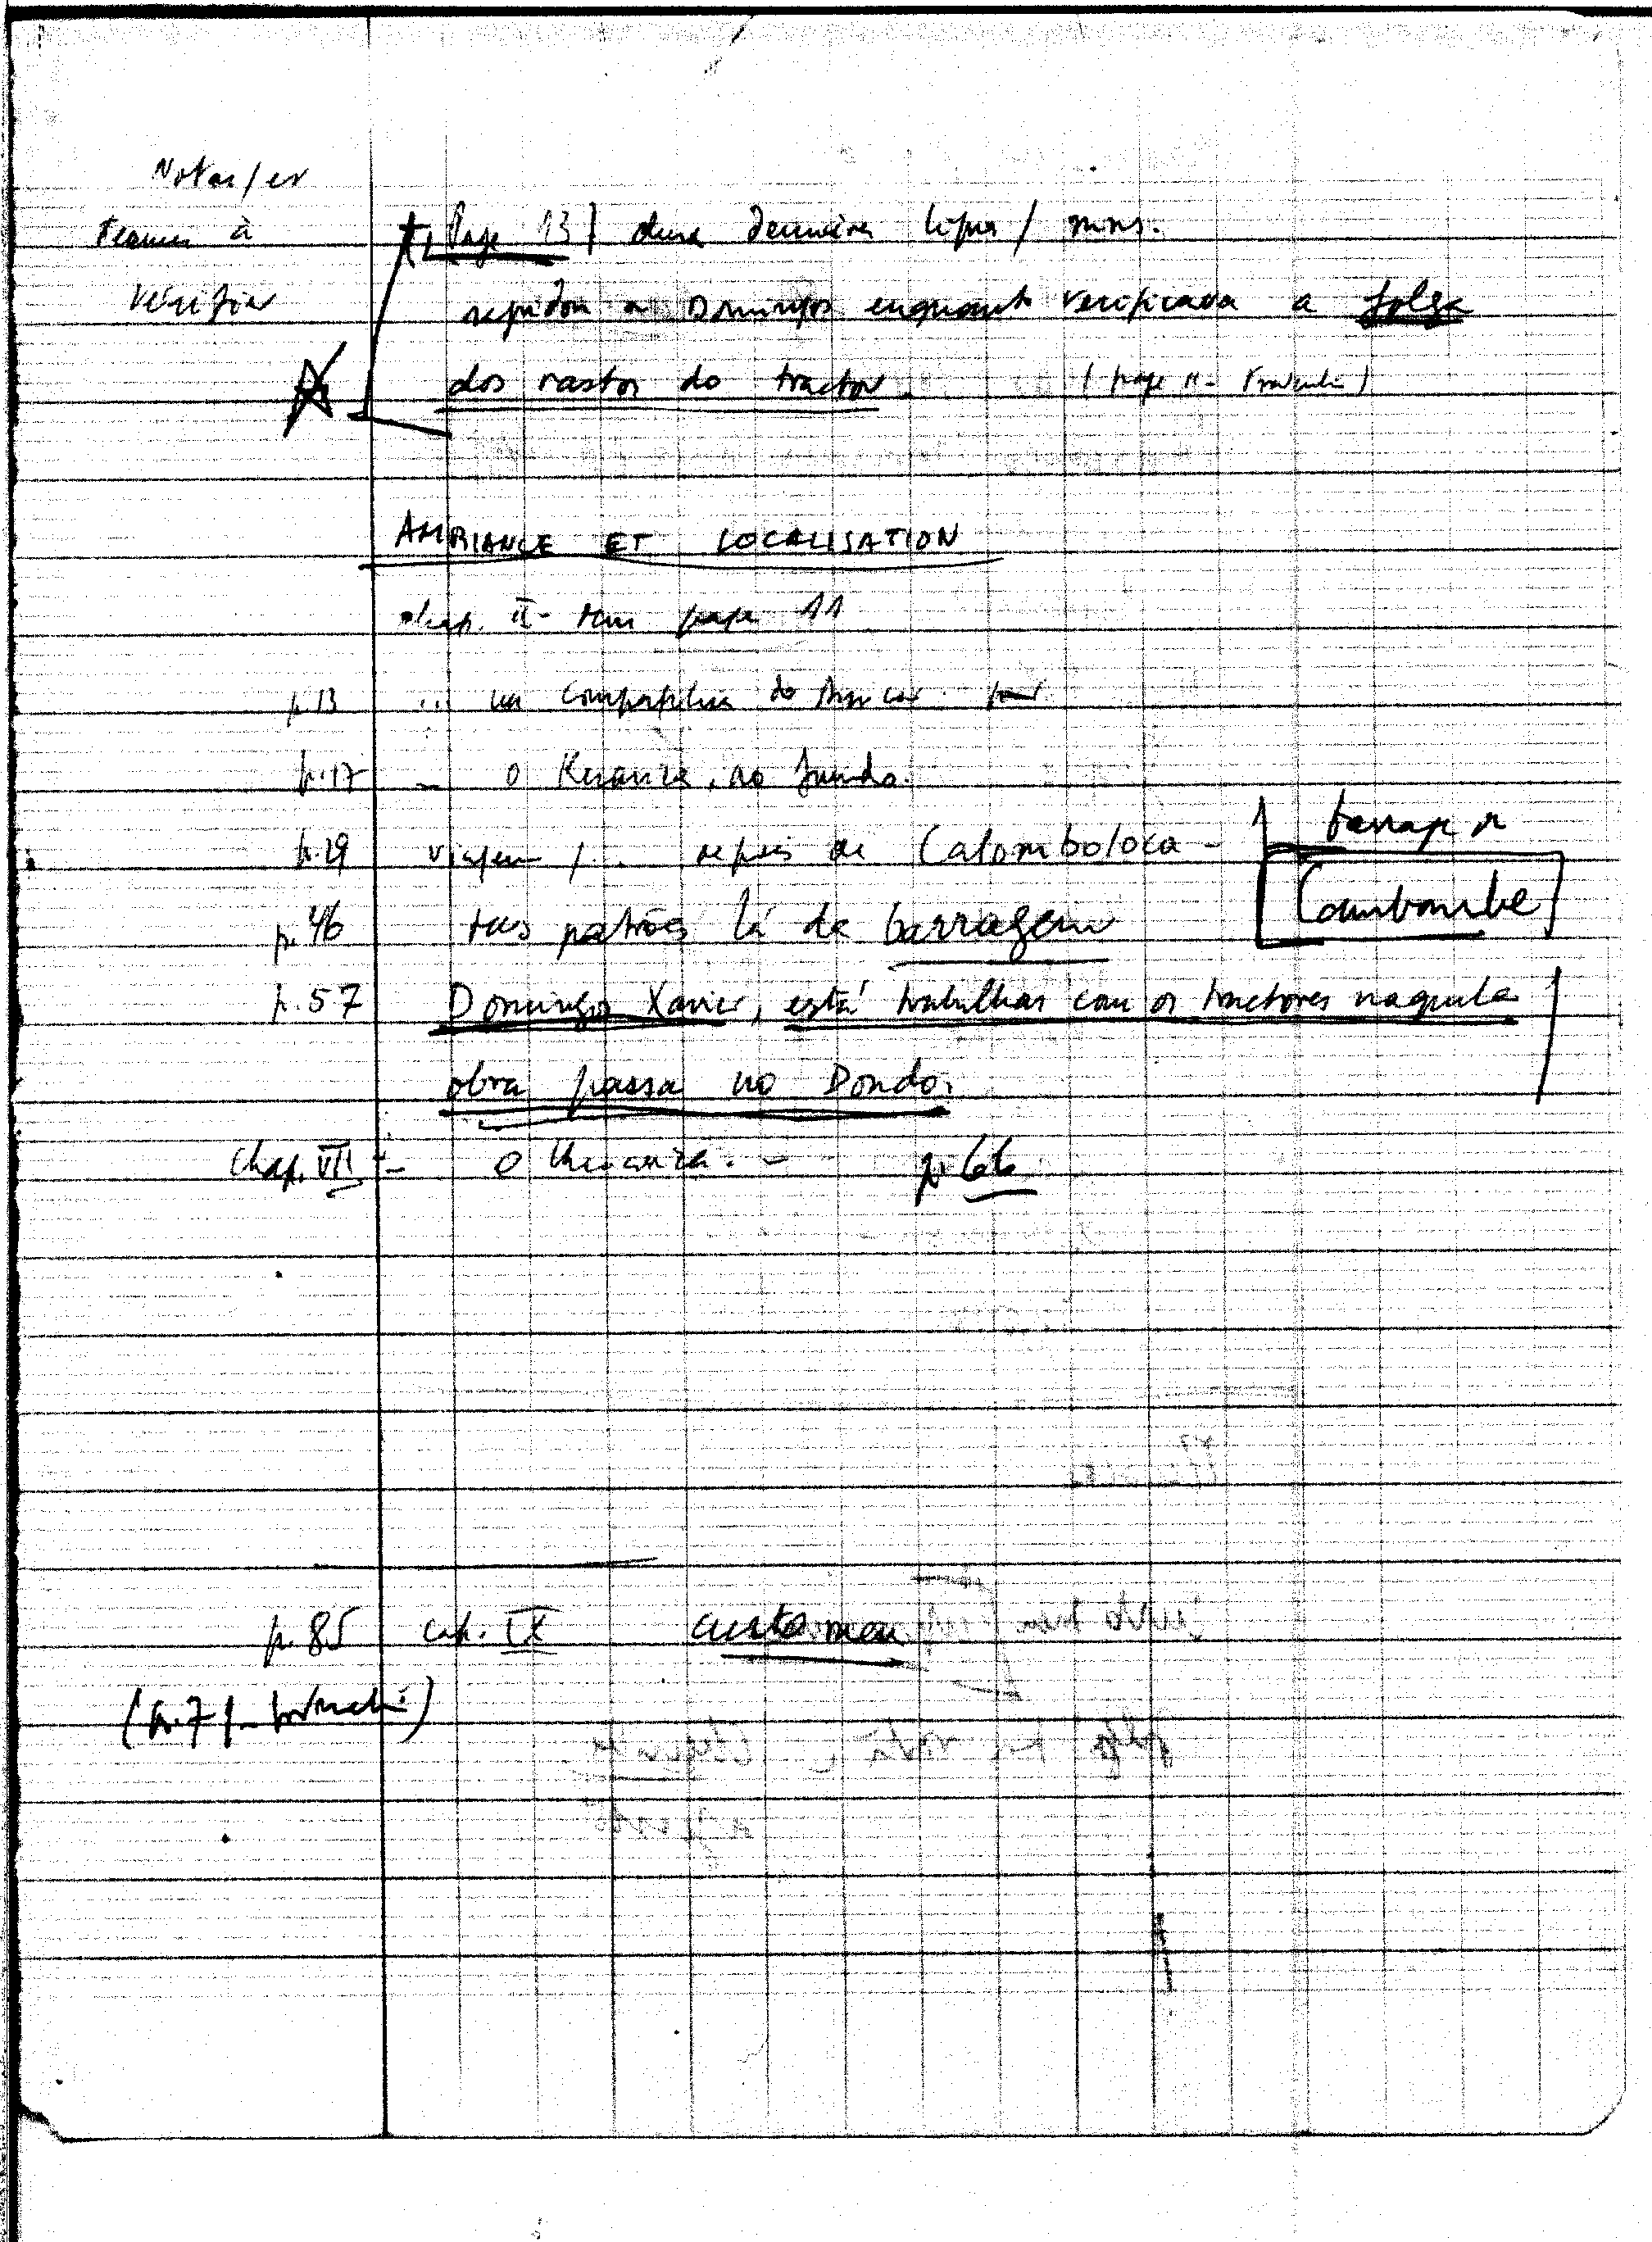 Notas/et
termes à
vérifier
Page 13) deux dernières lignes / mns.
Domingos enquanto verificava a folga
dos rastos do tractor. (page 11 -
AMBIANCE ET LOCALISATION
chap. II - page 11
p. 13 ... na Companhia do Açúcar
p. 17 - O Kuanza, ao fundo.
p. 29 viagem / . . depois de Calomboloca -
barrage
Cambambe
p. 46 teus patrões lá da barragem
p. 57 Domingos Xavier, está trabalhar com os tractores naquela
obra passa no Dondo.
Chap. VII - O Kuanza. - p. 66
p. 85 cap. IX
(p. 71 -